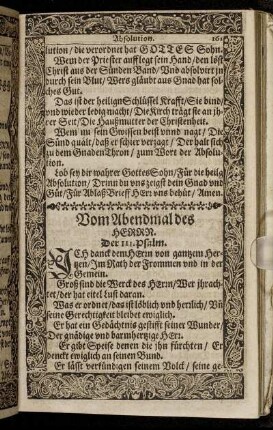 Absolution. 161
lution / die verordnet hat GOTTES Sohn.
Wem der Priester aufflegt sein Hand / den löst
Christ auß der Sünden Band / Vnd absolvirt jn
durch sein Blut / Wers gläubt aus Gnad hat sol=
ches Gut.
Das ist der heiligen Schlüssel Krafft / Sie bind /
vnd wieder ledig macht / Die Kirch trägt sie an jh=
rer Seit / Die Haußmutter der Christenheit.
Wem nu sein Gwissen beist vnnd nagt / Die
Sünd quält / daß er schier verzagt / Der halt sich
zu dem GnadenThron / zum Wort der Absolu=
tion.
Lob sey dir wahrer Gottes Sohn / Für die heilg
Absolution / Drinn du vns zeigst dein Gnad vnd
Güt / Für AblaßBrieff HErr vns behüt / Amen.
Vom Abendmal des
HERRN.
Der 111. Psalm.
ICH danck dem HErrn von gantzem Her=
tzen / Im Rath der Frommen vnd in der
Gemein.
Groß sind die Werck des HErrn / Wer jhr ach=
tet / der hat eitel Lust daran.
Was er ordnet / das ist löblich vnd herrlich / Vñ
seine Gerechtigkeit bleibet ewiglich.
Er hat ein Gedächtnis gestifft seiner Wunder /
Der gnädige vnd barmhertzige HErr.
Er gibt Speise denen die jhn fürchten / Er
denckt ewiglich an seinen Bund.
Er läst verkündigen seinem Volck / seine ge=